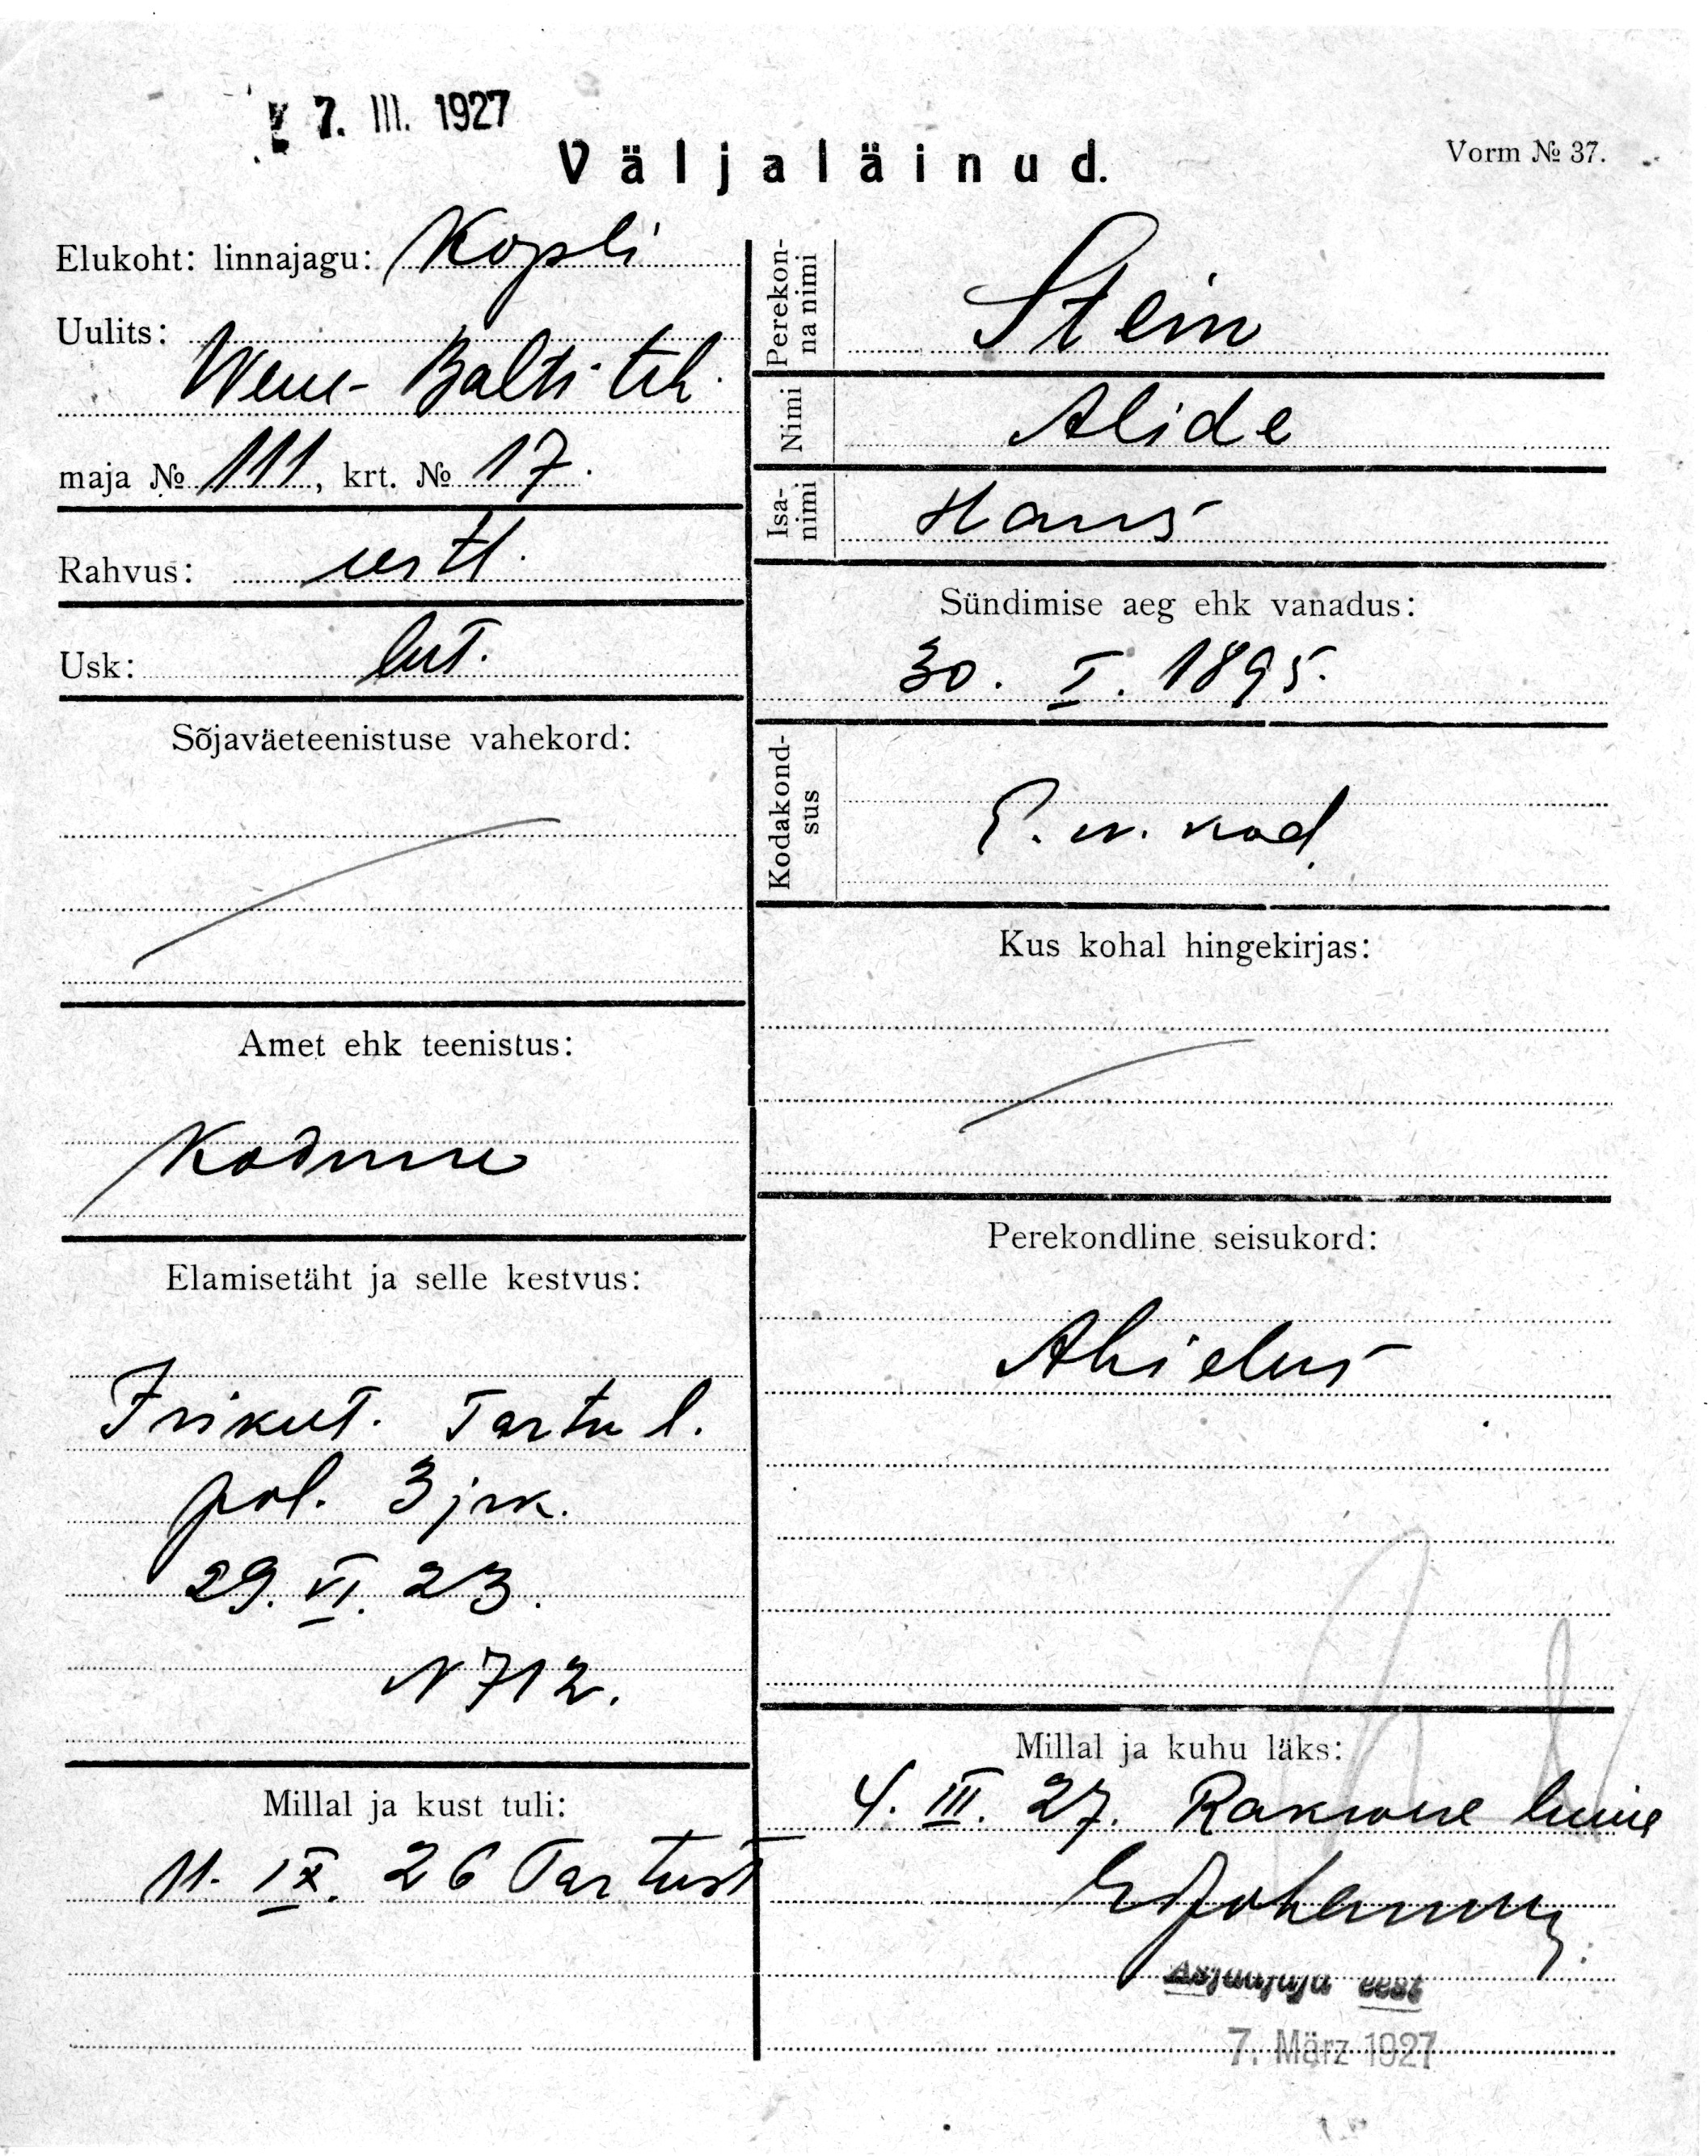 7. III. 1927
Väljaläinud.
Vorm № 37.
Elukoht: linnajagu: Kopli
Uulits:
Wene-Balti teh.
maja № 111, krt. № 17.
Rahvus: eestl.
Usk: lut.
Sõjaväeteenistuse vahekord:
Amet ehk teenistus:
Kodune
Elamisetäht ja selle kestvus:
Isikut. Tartu l.
pol. 3 jsk.
29. VI. 23.
N 712.
Millal ja kust tuli:
11. IX. 26 Tartust
Perekonna nimi
Stein
Nimi
Alide
Isanimi
Hans
Sündimise aeg ehk vanadus:
30. I. 1895.
Kodakondsus
E. w. kod.
Kus kohal hingekirjas:
Perekondline seisukord:
Abielus
Millal ja kuhu läks:
4. III. 27. Rakwere linna
Asjaajaja eest
7. März 1927